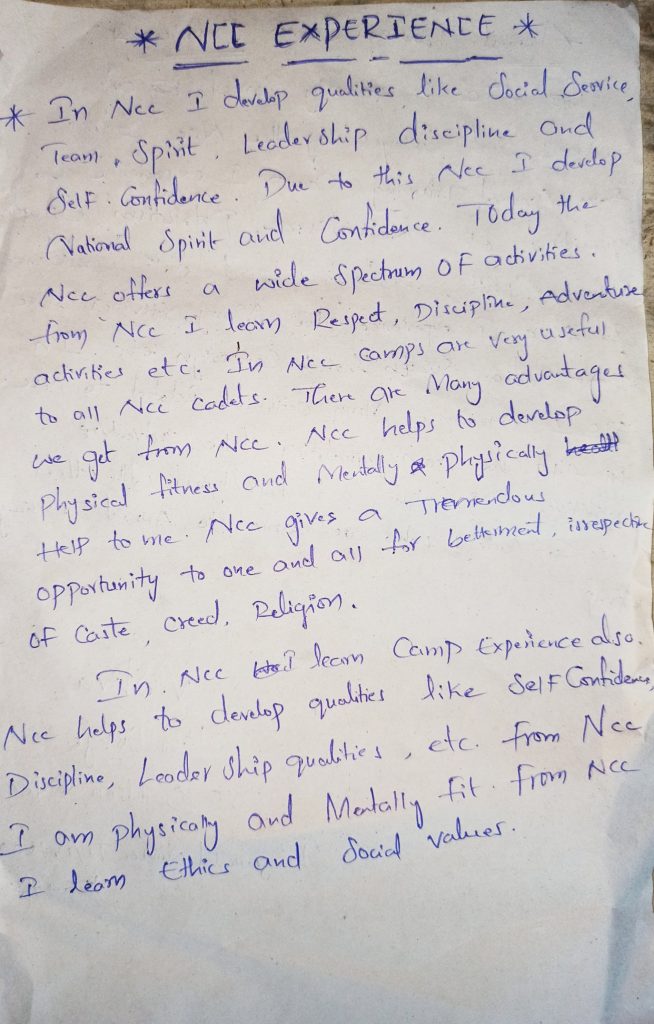 * NCC EXPERIENCE *
* In Ncc I develop qualities like Social Service,
Team, Spirit, Leadership discipline and
Self. Confidence. Due to this Ncc I develop
National Spirit and Confidence. Today the
Ncc offers a wide Spectrum OF activities.
from Ncc I learn Respect, Discipline, Adventure
activities etc. In Ncc camps are very useful
to all Ncc cadets. There are Many advantages
we get from Ncc. Ncc helps to develop
Physical fitness and Mentally & physically
Help to me. Ncc gives a Tremendous
opportunity to one and all for betterment, irrespective
of Caste, Creed, Religion.
In Ncc I learn Camp Experience also.
Ncc helps to develop qualities like Self Confidence,
Discipline, Leader Ship qualities, etc. from Ncc
I am physically and Mentally fit. from Ncc
I learn Ethics and Social values.